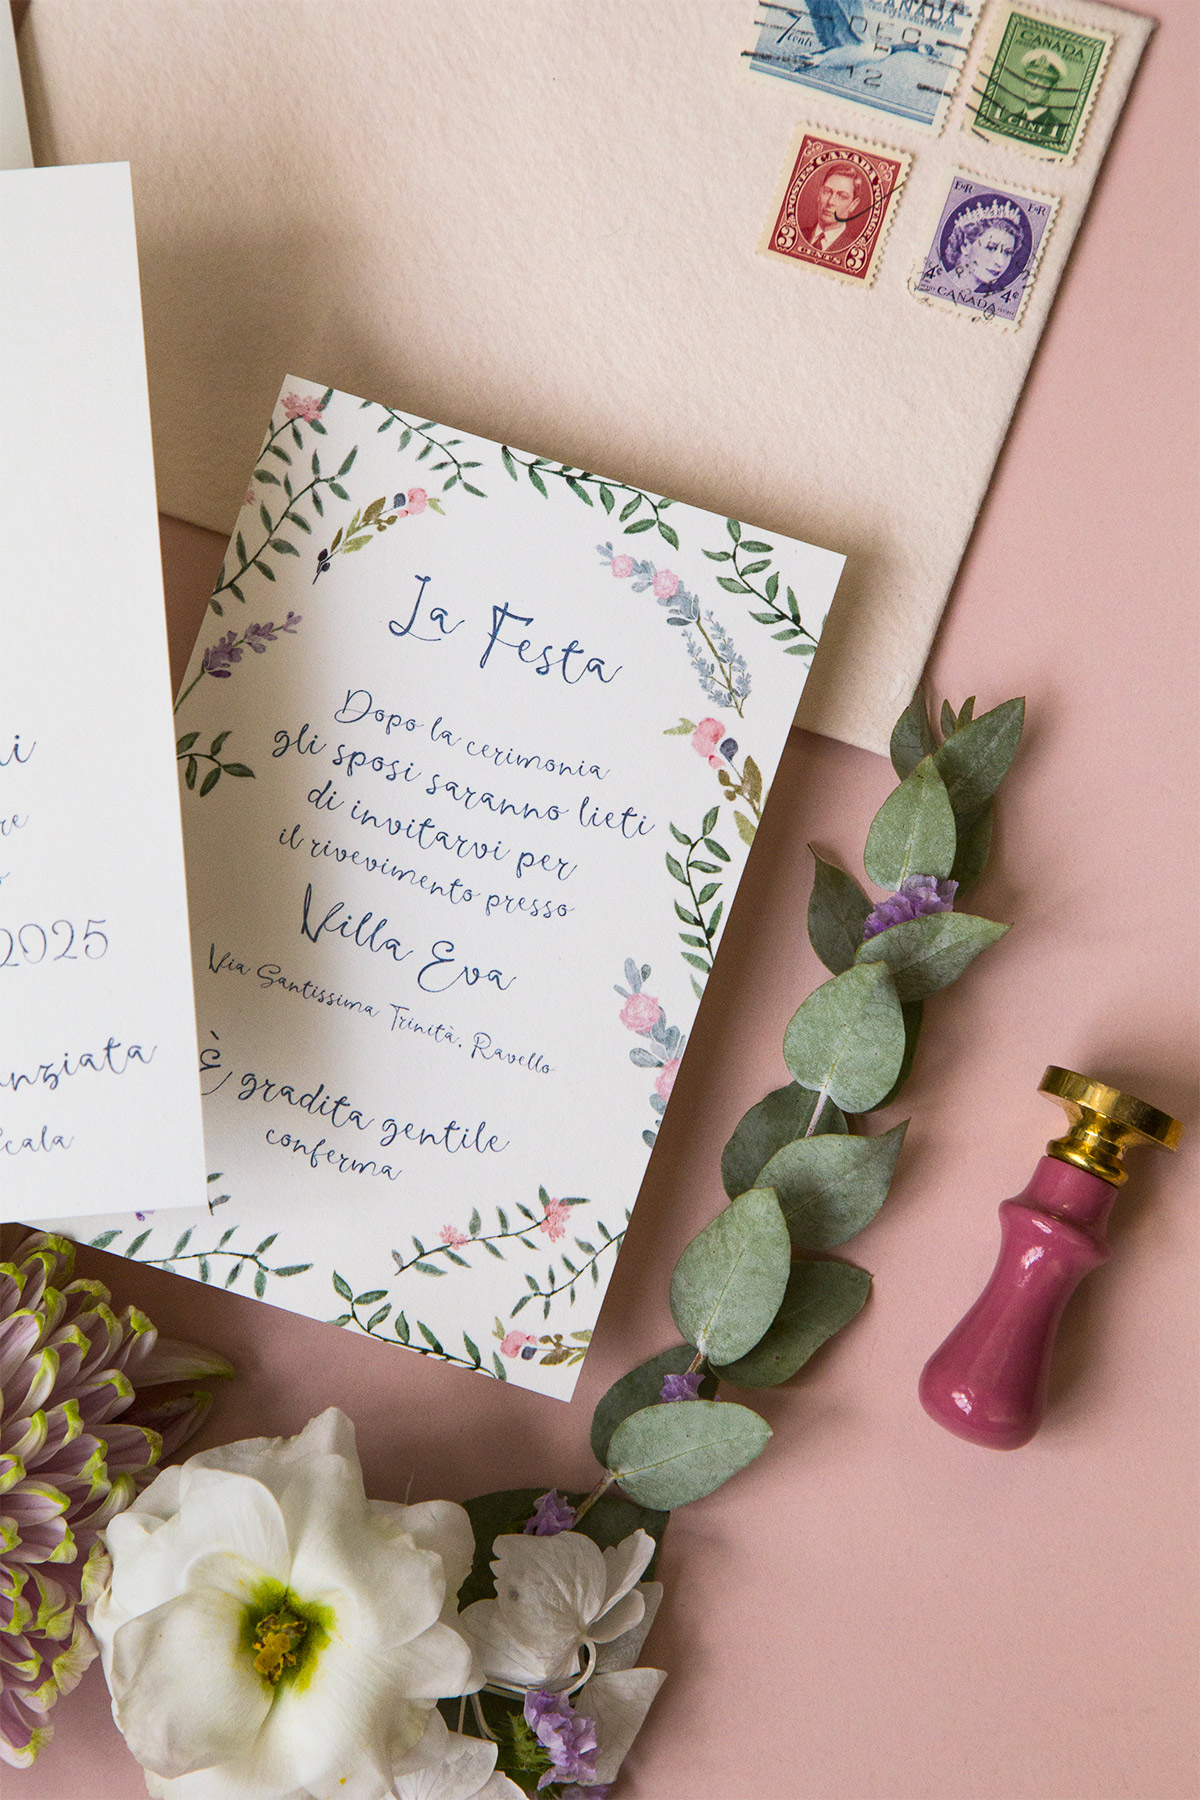 CANADA
7 cents
DEC
P
12
CANADA
1 CENT 1
POSTES CANADA POSTAGE
3 CENTS 3
E II R E II R
4¢ 4¢
CANADA
2025
Scala
La Festa
Dopo la cerimonia
gli sposi saranno lieti
di invitarvi per
il rivevimento presso
Villa Eva
Via Santissima Trinità, Ravello
È gradita gentile
conferma